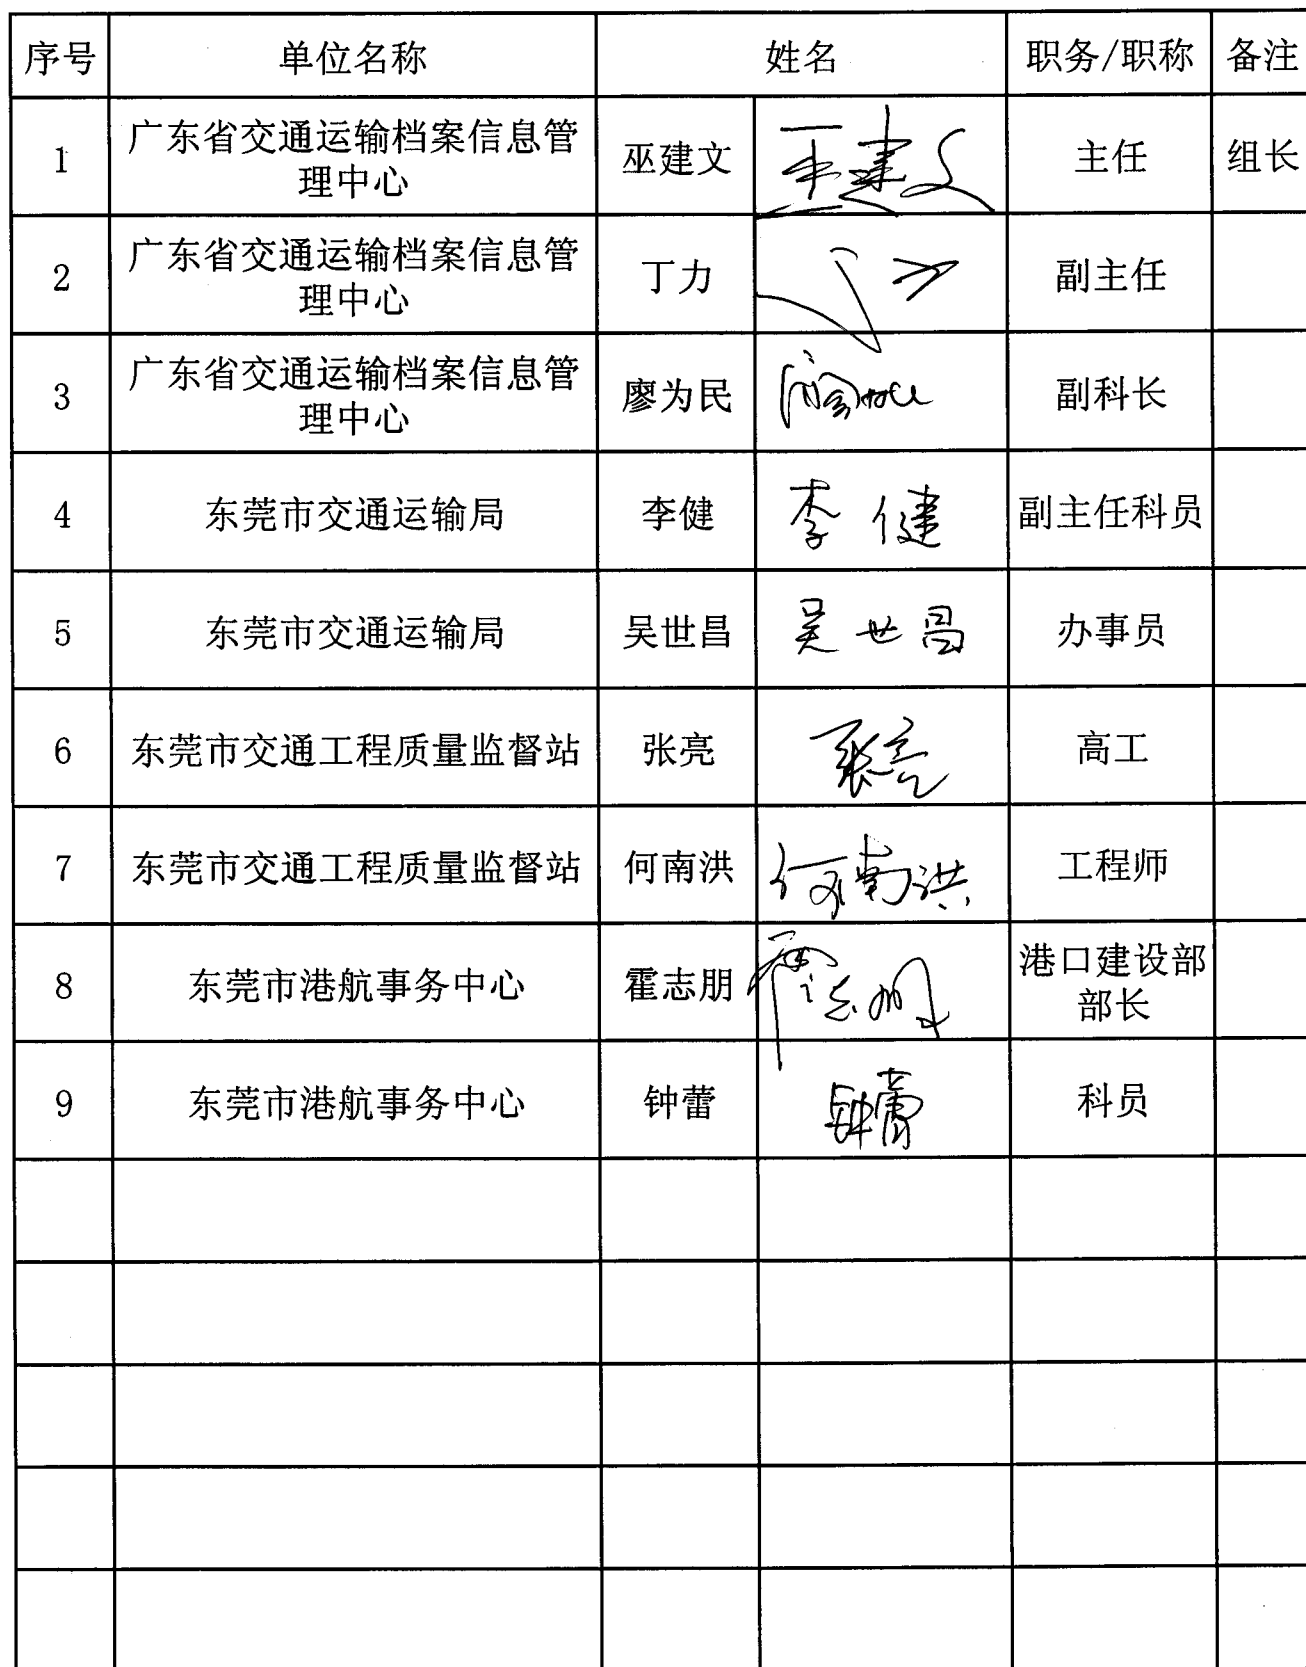 序号 单位名称 姓名 职务/职称 备注
1 广东省交通运输档案信息管 巫建文 巫建文 主任 组长
理中心
2 广东省交通运输档案信息管 丁力 丁力 副主任
理中心
3 广东省交通运输档案信息管 廖为民 副科长
理中心
4 东莞市交通运输局 李健 李健 副主任科员
5 东莞市交通运输局 吴世昌 吴世昌 办事员
6 东莞市交通工程质量监督站 张亮 张亮 高工
7 东莞市交通工程质量监督站 何南洪 何南洪 工程师
8 东莞市港航事务中心 霍志朋 霍志朋 港口建设部
部长
9 东莞市港航事务中心 钟蕾 钟蕾 科员